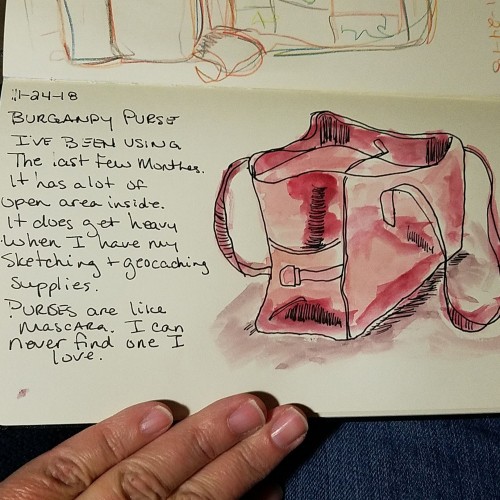 1-24-18
BURGANDY PURSE
I'VE BEEN USING
The last Few Months.
It has alot of
open area inside.
It does get heavy
when I have my
Sketching + geocaching
supplies.
PURSES are like
mascara. I can
never find one I
love.